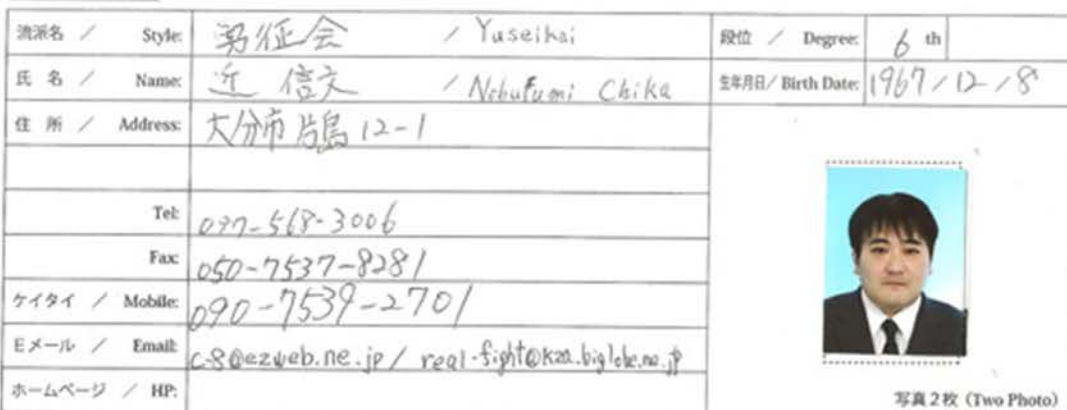 流派名 / Style: 勇征会 / Yuseikai
段位 / Degree: 6 th
氏名 / Name: 近 信文 / Nobufumi Chika
生年月日/ Birth Date: 1967/12/8
住所 / Address: 大分市片島12-1
Tel: 097-568-3006
Fax: 050-7537-8281
ケイタイ / Mobile: 090-7539-2701
Eメール / Email: c-8@ezweb.ne.jp / real-fight@kza.biglobe.ne.jp
ホームページ / HP:
写真2枚 (Two Photo)